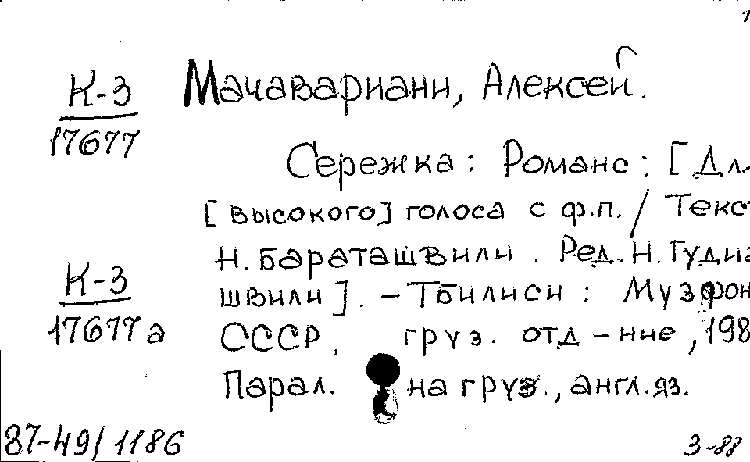 К-3 Мачавариани, Алексей.
17677
Сережка: Романс: [Дл
[высокого] голоса с ф.п. / Текс
Н. Бараташвили. Ред. Н. Гудиа
К-3
швили]. - Тбилиси: Музфон
17677а СССР, груз. отд-ние, 198
Парал. на груз., англ. яз.
87-49/1186 3-88